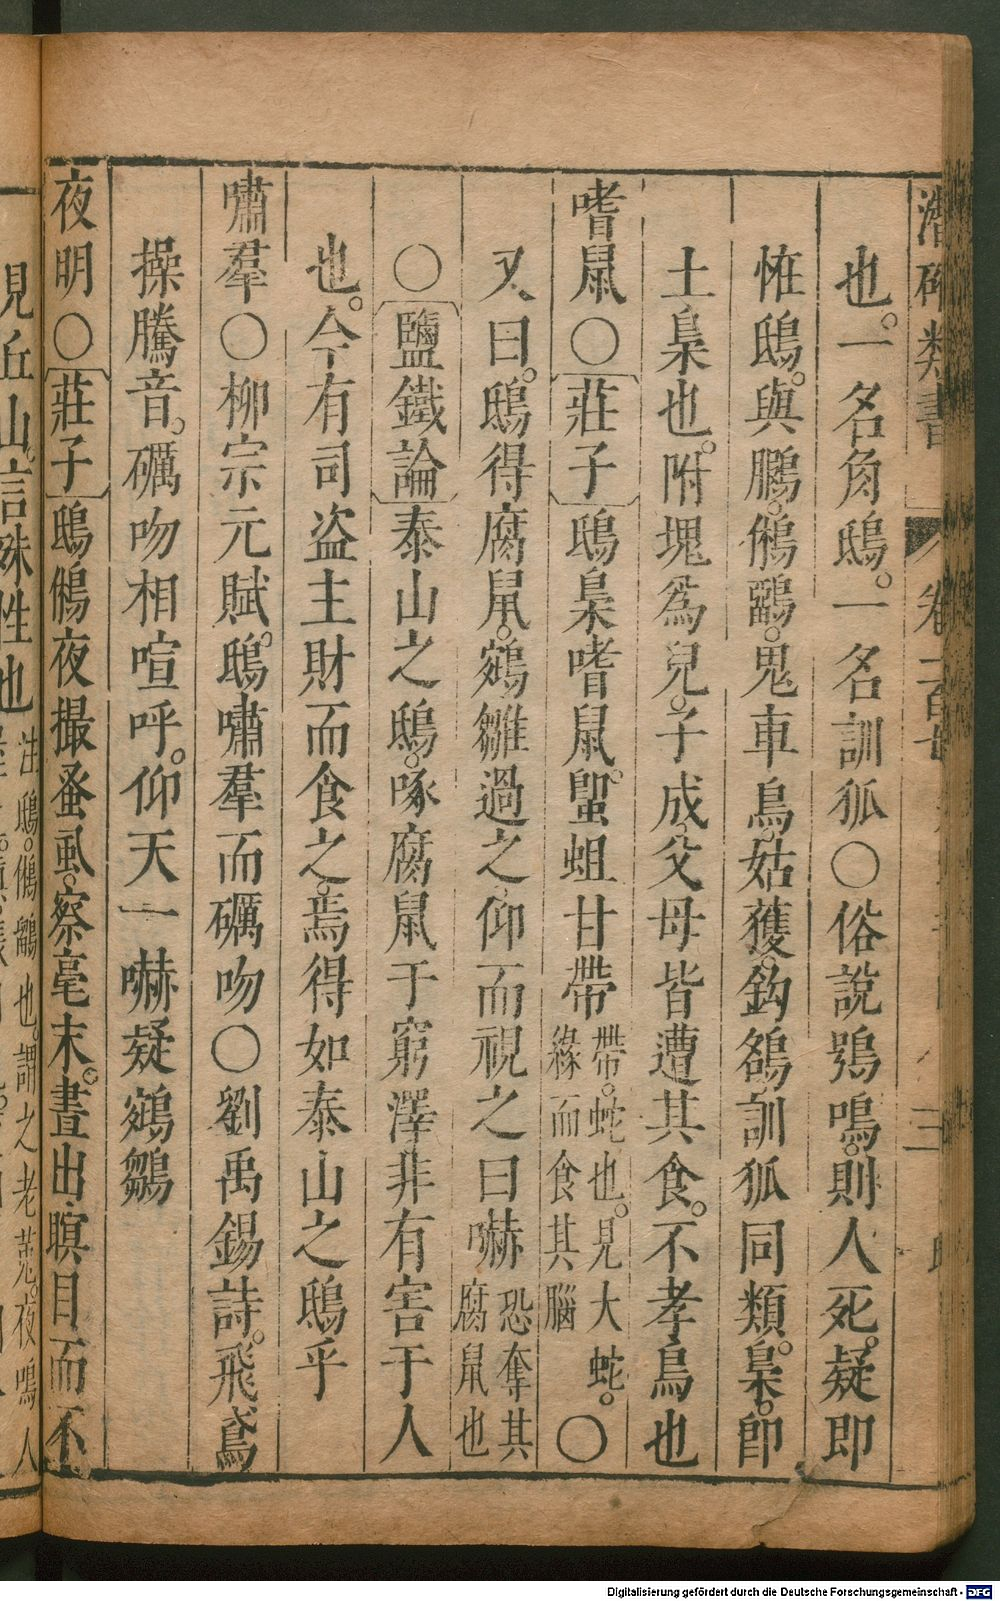 潛確類書 卷二百
也。一名角鴟。一名訓狐〇俗說鴞鳴。則人死。疑即
恠鴟。與鵩。鵂鶹。鬼車鳥。姑獲。鈎鵅訓狐同類。梟。卽
土梟也。附塊爲兒。子成。父母皆遭其食。不孝鳥也
嗜鼠〇莊子鴟梟嗜鼠。蝍蛆甘帶帶。蛇也。見大蛇。緣而食其腦〇
又曰。鴟得腐鼠。鵷雛過之。仰而視之曰嚇恐奪其腐鼠也
〇鹽鐵論泰山之鴟。啄腐鼠于窮澤非有害于人
也。今有司盗主財而食之。焉得如泰山之鴟乎
嘯羣〇柳宗元賦。鴟嘯羣而礪吻〇劉禹錫詩。飛鳶
操騰音。礪吻相喧呼。仰天一嚇疑鵷鶵
夜明〇莊子鴟鵂夜撮蚤虱。察毫末。晝出瞑目而不
見丘山。言殊性也注鴟。鵂鶹也。謂之老菟。夜鳴人
Digitalisierung gefördert durch die Deutsche Forschungsgemeinschaft - DFG